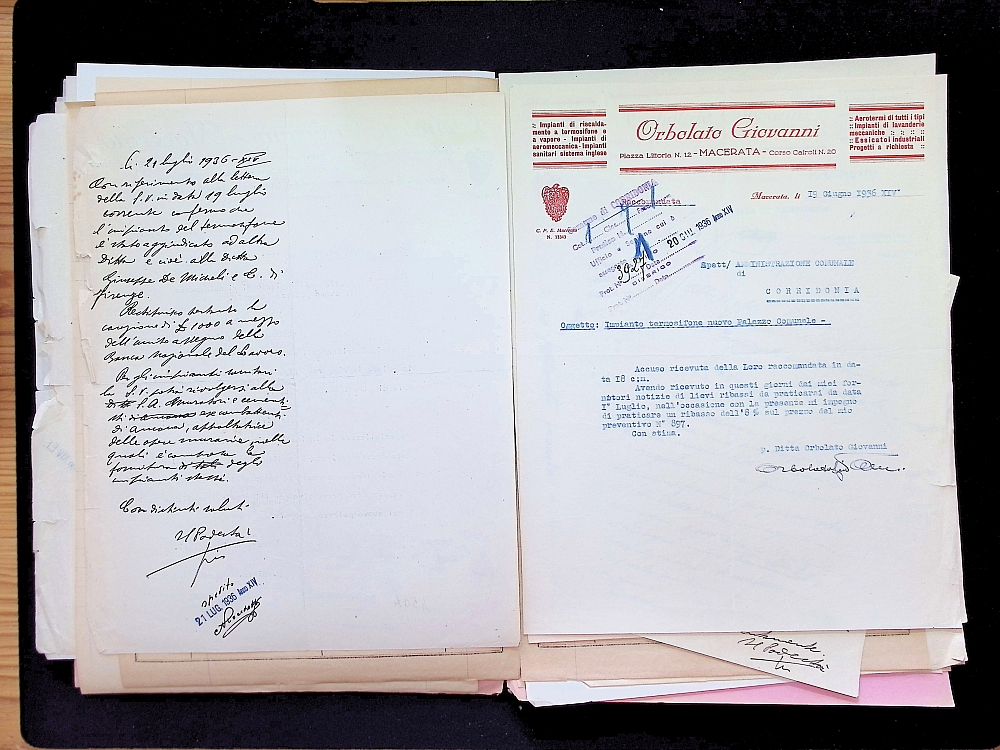 C. 21 luglio 1936-XIV
Con riferimento alla lettera
della S.V. in data 19 luglio
corrente confermo che
l'impianto del termosifone
è stato aggiudicato ad altra
ditta e cioè alla ditta
Giuseppe De Micheli e C. di
Firenze.
Restituisco pertanto la
cauzione di £ 1000 a mezzo
dell'unito assegno della
Banca Nazionale del Lavoro.
Per gli impianti sanitari
la S.V. potrà rivolgersi alla
S.A. Muratori e cementi-
sti ex combattenti
di Ancona, appaltatrice
delle opere murarie nelle
quali è compresa la
fornitura di degli
impianti stessi.
Con distinti saluti
Il Podestà
spedito
21 LUG. 1936 Anno XIV
:: Impianti di riscalda-
mento a termosifone e
a vapore - Impianti di
aeromeccanica - Impianti
sanitari sistema inglese
Orbolato Giovanni
Piazza Littoria N. 12 - MACERATA - Corso Cairoli N. 20
:: Aerotermi di tutti i tipi
:: Impianti di lavanderie
meccaniche :: :: :: ::
:: Essicatoi industriali
Progetti a richiesta ::
C. P. E. Macerata
N. 13343
Raccomandata
Macerata, li 19 Giugno 1936 XIV°
Comune di CORRIDONIA
20 GIU. 1936 Anno XIV
Prot. N. 3927
Spett/ AMMINISTRAZIONE COMUNALE
di
CORRIDONIA
Oggetto: Impianto termosifone nuovo Palazzo Comunale -
Accuso ricevuta della Loro raccomandata in da-
ta 18 c:m.
Avendo ricevuto in questi giorni dai miei for-
nitori notizie di lievi ribassi da praticarsi da data
I° Luglio, nell'occasione con la presente mi impegno
di praticare un ribasso dell'8 % sul prezzo del mio
preventivo N° 897.
Con stima.
p. Ditta Orbolato Giovanni
Il Podestà